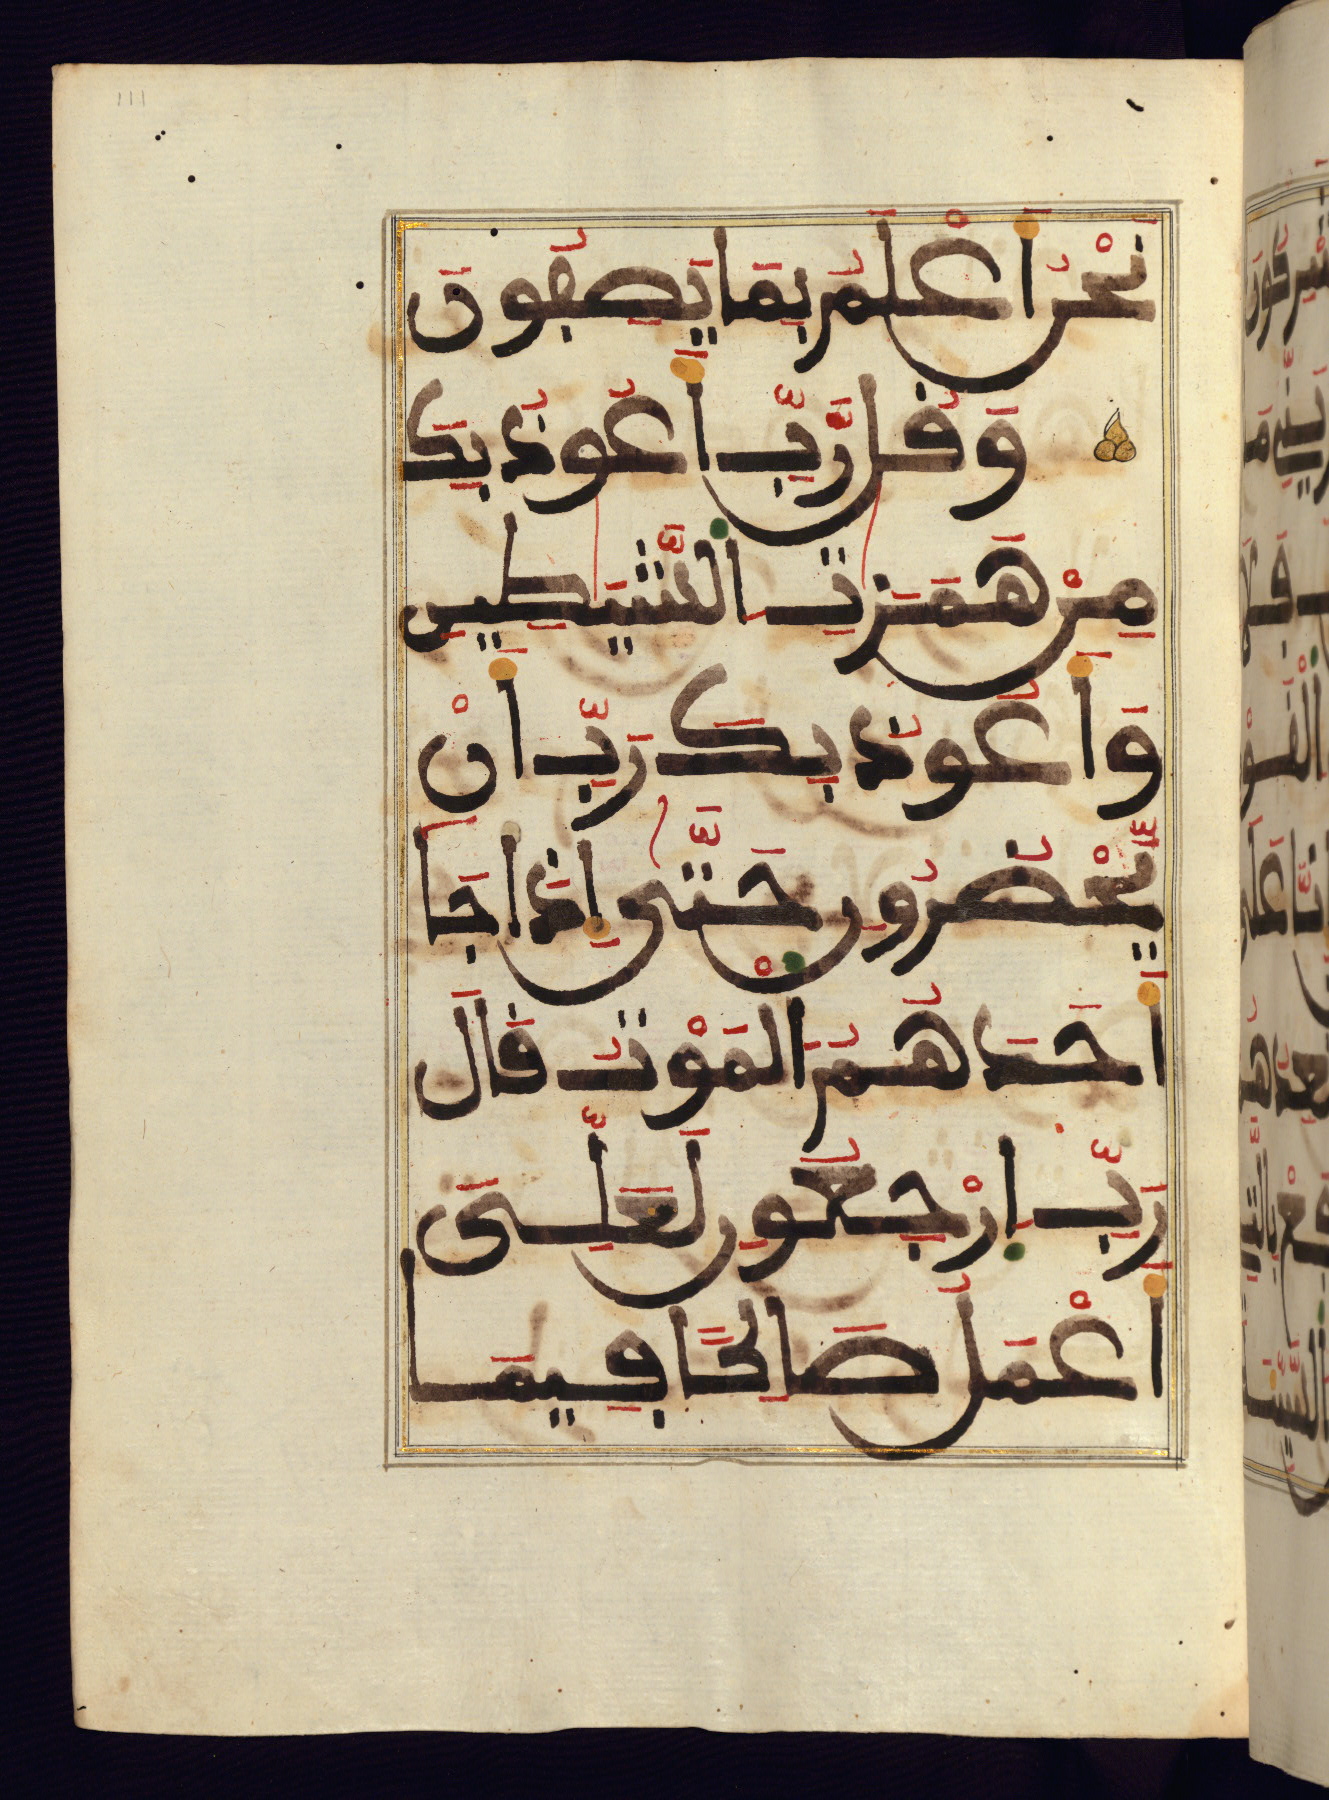 نَحْنُ أَعْلَمُ بِمَا يَصِفُونَ
وَقُل رَّبِّ أَعُوذُ بِكَ
مِنْ هَمَزَٰتِ الشَّيَٰطِينِ
وَأَعُوذُ بِكَ رَبِّ أَنْ
يَّحْضُرُونِ حَتَّىٰ إِذَا جَا
أَحَدَهُمُ الْمَوْتُ قَالَ
رَبِّ ارْجِعُونِ لَعَلِّىَ
أَعْمَلُ صَالِحًا فِيمَا